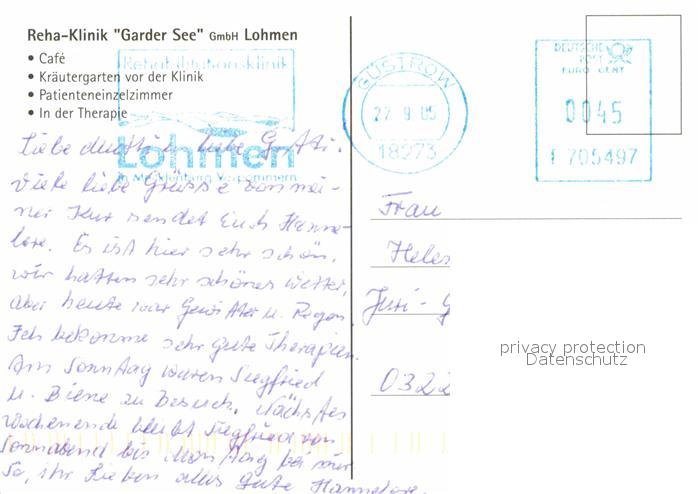 Reha-Klinik "Garder See" GmbH Lohmen
• Café
• Kräutergarten vor der Klinik
• Patienteneinzelzimmer
• In der Therapie
Rehabilitationsklinik
Lohmen
in Mecklenburg Vorpommern
GÜSTROW
27.9.05
18273
DEUTSCHE
POST
EURO CENT
0045
F 705497
Liebe liebe
viele liebe Grüsse von mei-
ner Kur sendet Euch Hanne-
lore. Es ist hier sehr schön,
wir hatten sehr schönes Wetter,
aber heute war Gewitter u. Regen.
Ich bekomme sehr gute Therapien.
Am Sonntag waren Siegfried
u. Biene zu Besuch. Nächstes
Wochenende bleibt Siegfried von
Sonnabend bis Montag bei mir
So, ihr Lieben alles Gute Hannelore.
Frau
Heles
Juri-G
0322
privacy protection
Datenschutz